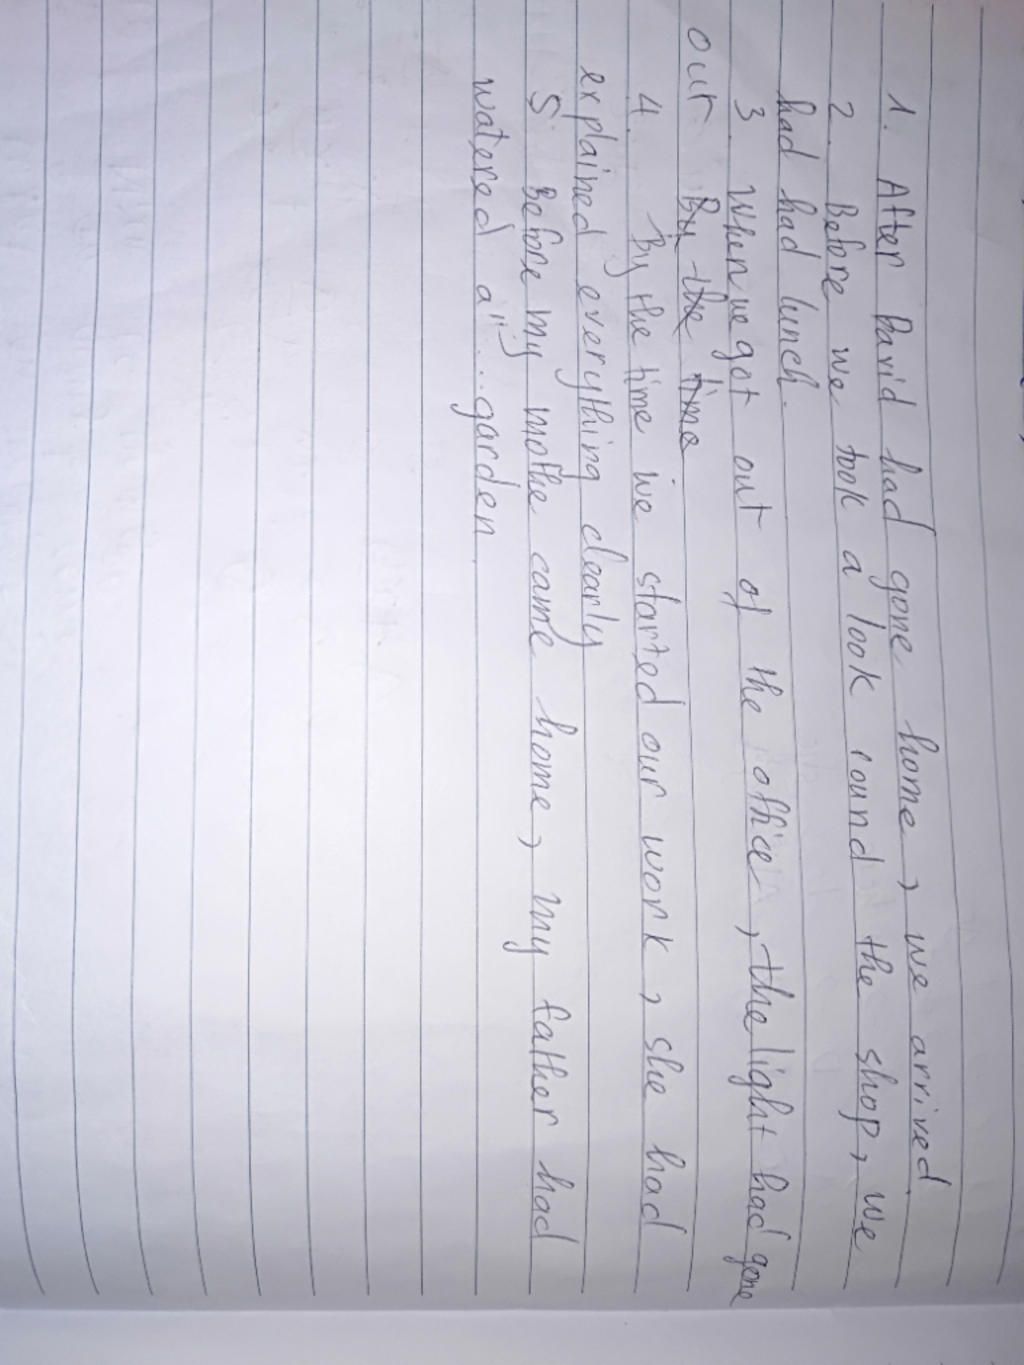 1. After David had gone home, we arrived.
2. Before we took a look round the shop, we
had had lunch.
3. When we got out of the office, the light had gone
out By the time
4. By the time we started our work, she had
explained everything clearly
5. Before my mothe came home, my father had
watered a garden.